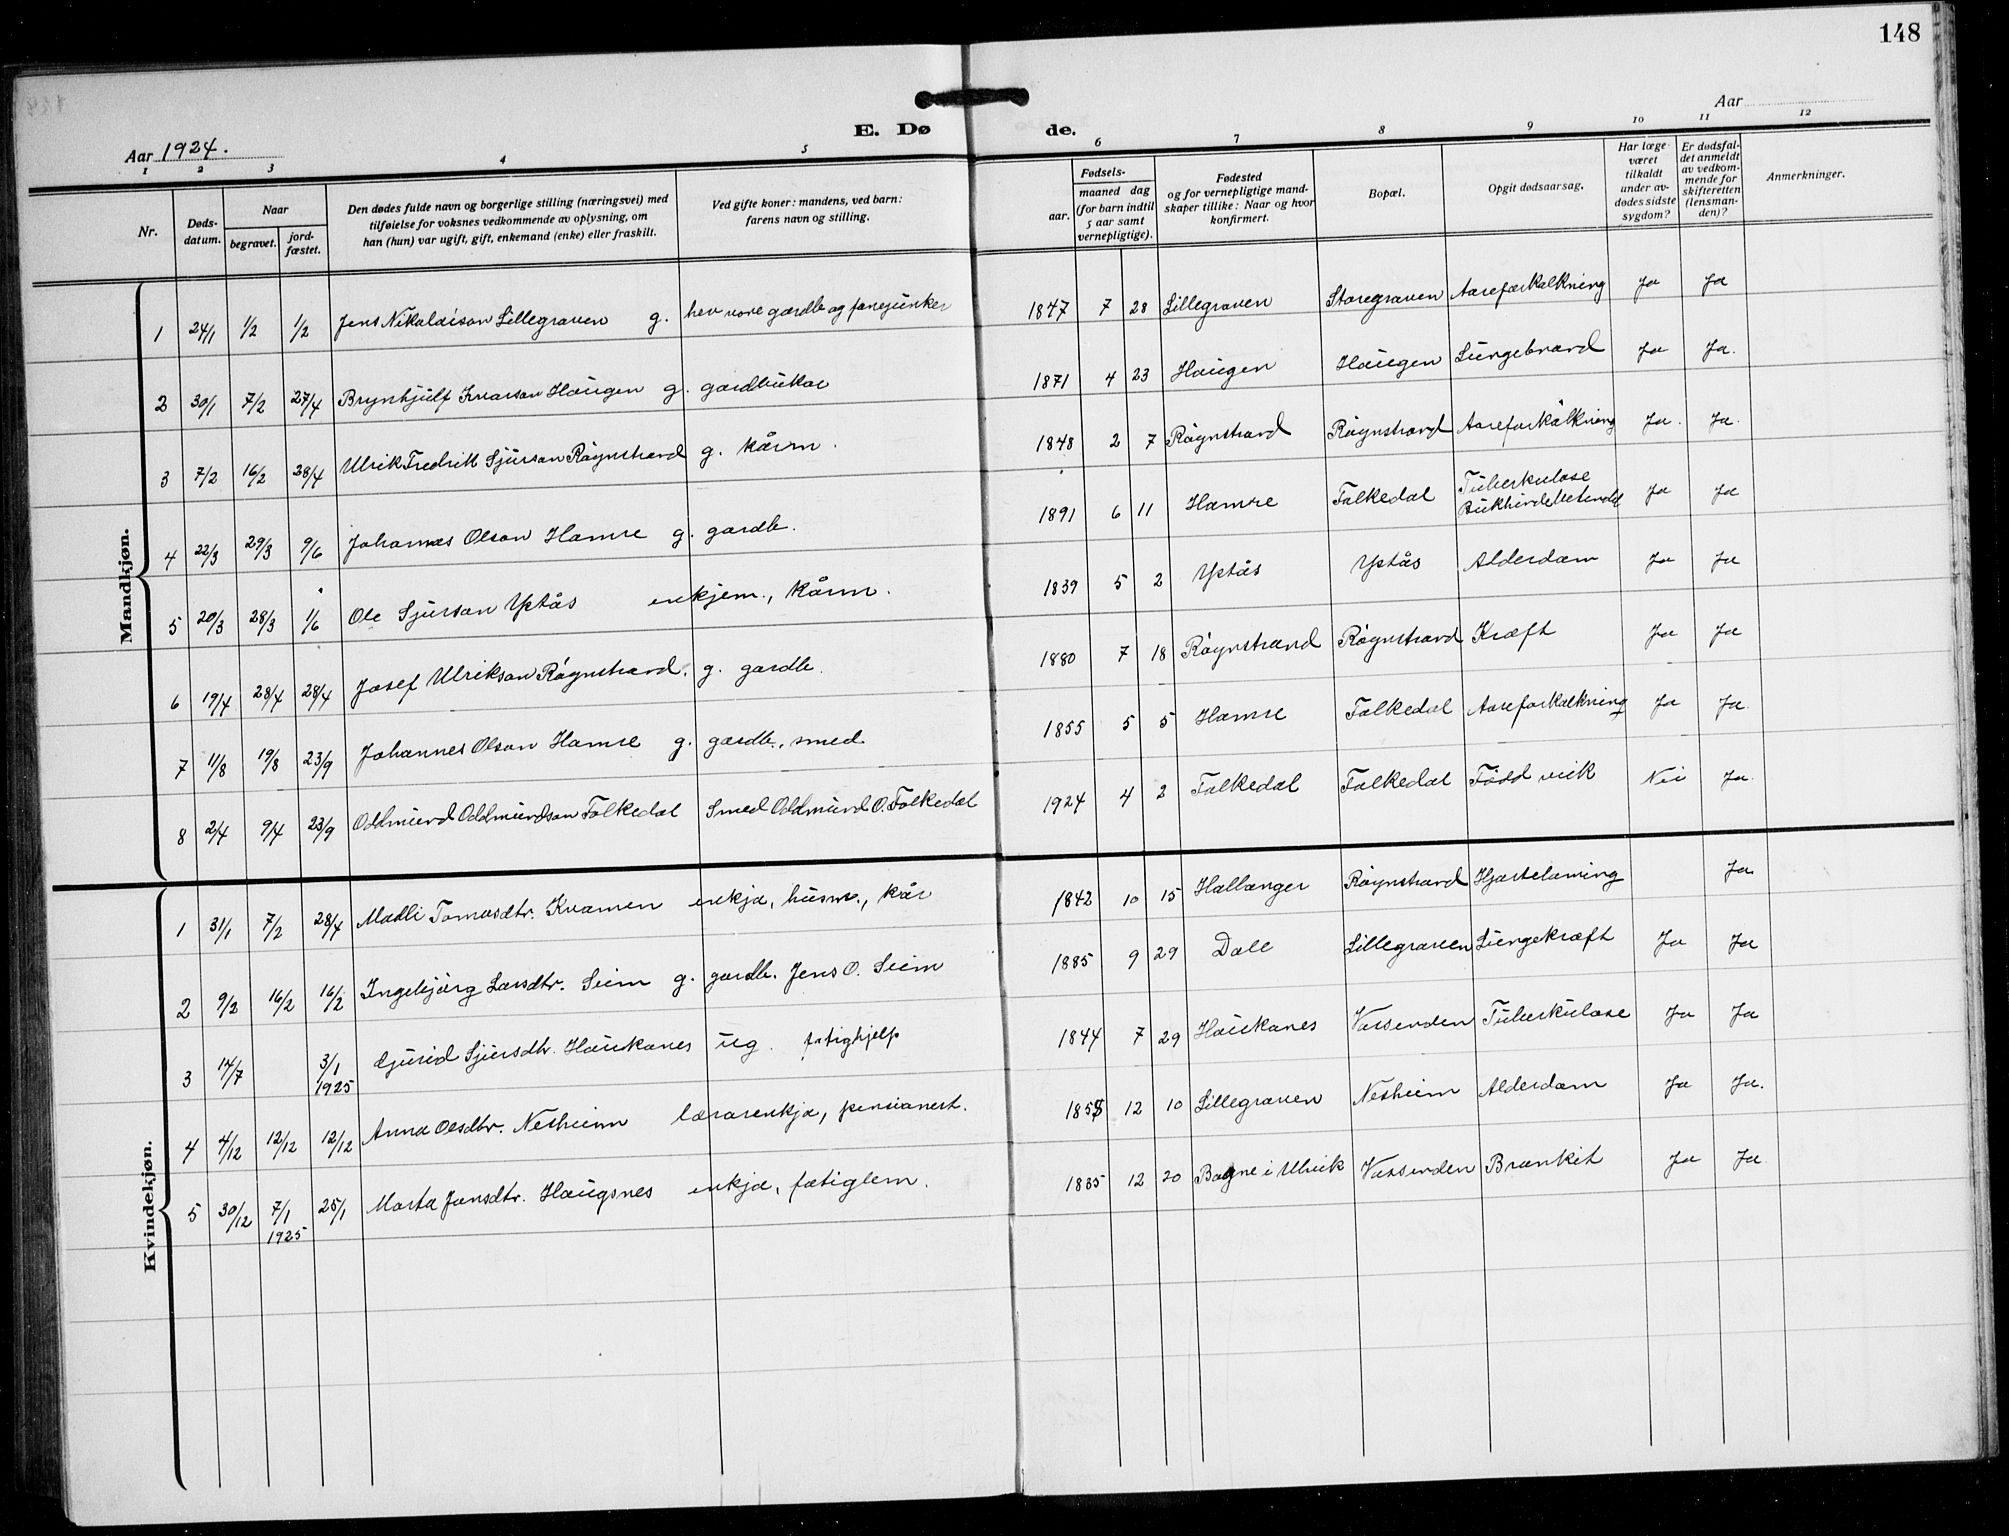 148
Aar 1924.
E. Dø
de.
Aar
1 2 3 4 5 6 7 8 9 10 11 12
Nr.
Døds-
datum.
Naar
begravet.
jord-
fæstet.
Den dødes fulde navn og borgerlige stilling (næringsvei) med
tilføielse for voksnes vedkommende av oplysning, om
han (hun) var ugift, gift, enkemand (enke) eller fraskilt.
Ved gifte koner: mandens, ved barn:
farens navn og stilling.
Fødsels-
aar.
maaned dag
(for barn indtil
5 aar samt
vernepligtige).
Fødested
og for vernepligtige mand-
skaper tillike: Naar og hvor
konfirmert.
Bopæl.
Opgit dødsaarsag.
Har læge
været
tilkaldt
under av-
dødes sidste
sygdom?
Er dødsfal-
det anmeldt
av vedkom-
mende for
skifteretten
(lensman-
den)?
Anmerkninger.
Mandkjøn.
1 24/1 1/2 1/2 Jens Nikolaison Lillegraven g. hev vore gardb og fanejunker 1847 7 28 Lillegraven Storegraven Aareforkalkning Ja Ja
2 30/1 7/2 27/4 Brynhjulf Ivarson Haugen g. gardbukar 1871 4 23 Haugen Haugen Lungebrand Ja Ja.
3 7/2 16/2 28/4 Ulrik Fredrik Sjurson Røynstrand g. kårm. 1848 2 7 Røynstrand Røynstrand Aareforkalkning Ja. Ja.
4 22/3 29/3 9/6 Johannes Olson Hamre g. gardb. 1891 6 11 Hamre Folkedal Tuberkuløse Bukhindebetendels Ja Ja
5 20/3 28/3 1/6 Ole Sjurson Ystås enkjem., kårm. 1839 5 2 Ystås Ystås Alderdom Ja Ja
6 19/4 28/4 28/4 Josef Ulrikson Røynstrand. g. gardb. 1880 7 18 Røynstrand Røynstrand Kræft Ja Ja
7 11/8 19/8 23/9 Johannes Olson Hamre g. gardb., smed 1855 5 5 Hamre Folkedal Aareforkalkning Ja Ja.
8 2/4 9/4 23/9 Oddmund Oddmundson Folkedal Smed Oddmund O. Folkedal 1924 4 2 Folkedal Folkedal Fødd veik Nei Ja.
Kvindekjøn.
1 31/1 7/2 28/4 Madli Tomasdtr. Kvamen enkja, husm., kår 1842 10 15 Hallanger Røynstrand Hjartelaming Ja
2 9/2 16/2 16/2 Ingebjørg Larsdtr. Seim g. gardb. Jens O. Seim 1885 9 29 Dale Lillegraven Lungekræft Ja Ja
3 14/7 3/1 1925 Gjurid Sjursdtr. Haukanes ug. fatighjelp 1844 7 29 Haukanes Vassenden Tuberkulose Ja Ja
4 4/12 12/12 12/12 Anna Olsdtr. Nesheim lærarenkja, pensionert. 1855 12 10 Lillegraven Nesheim Alderdom Ja Ja.
5 30/12 7/1 1925 25/1 Marta Jonsdtr. Haugsnes enkja, fatiglem. 1835 12 20 Bagne i Ulvik Vassenden Bronkit Ja Ja